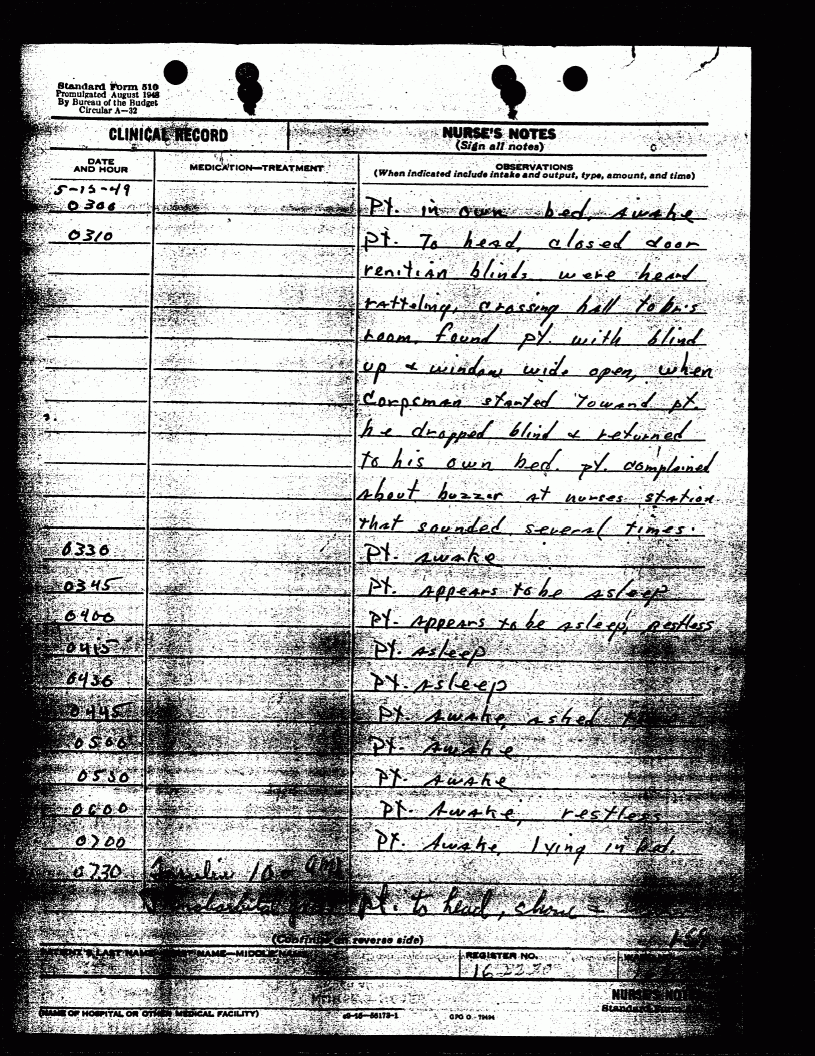 Standard Form 510
Promulgated August 1948
By Bureau of the Budget
Circular A—32
CLINICAL RECORD
NURSE'S NOTES
(Sign all notes)
DATE AND HOUR
MEDICATION—TREATMENT
OBSERVATIONS
(When indicated include intake and output, type, amount, and time)
5-15-49
0300 Pt. in own bed, awake
0310 pt. To head, closed door
venitian blinds were heard
ratteling, crossing hall to
room, found pt. with blind
up & window wide open, when
Corpsman started Toward pt.
he dropped blind & returned
to his own bed. pt. complained
about buzzer at nurses station
that sounded several times.
0330 Pt. awake
0345 Pt. appears to be asleep
0400 Pt- appears to be asleep, restless
0415 Pt. asleep
0430 Pt. asleep
0445 Pt. awake, asked
0500 Pt- Awake
0530 Pt. Awake
0600 Pt. Awake, restless
0700 Pt. Awake, lying in bed.
0730
pt. to head,
(Continue on reverse side)
PATIENT'S LAST NAME—FIRST NAME—MIDDLE NAME
REGISTER NO.
NURSE'S NOTES
Standard Form
(NAME OF HOSPITAL OR OTHER MEDICAL FACILITY)